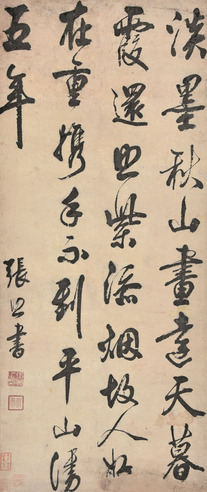 淡墨秋山畫遠天暮
霞還照紫添烟故人好
在重攜手不到平山漫
五年
張照書